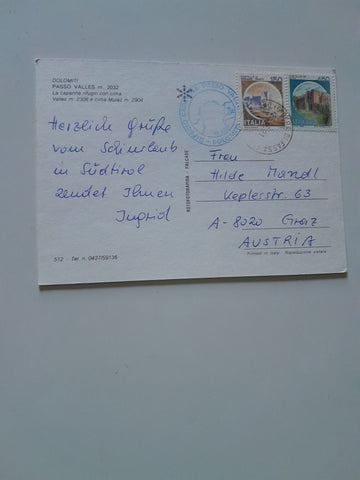 DOLOMITI
PASSO VALLES m. 2032
La capanna rifugio con cima
Valles m. 2306 e cima Mulaz m. 2904
Herzliche Grüße
vom Schiurlaub
in Südtirol
sendet Ihnen
Ingrid
512 - Tel. n. 0437/59136
FOTOFOTOGRAFIA - FALCADE
ITALIA
ITALIA
Frau
Hilde Mandl
Keplerstr. 63
A-8020 Graz
AUSTRIA
Printed in Italy Riproduzione vietata